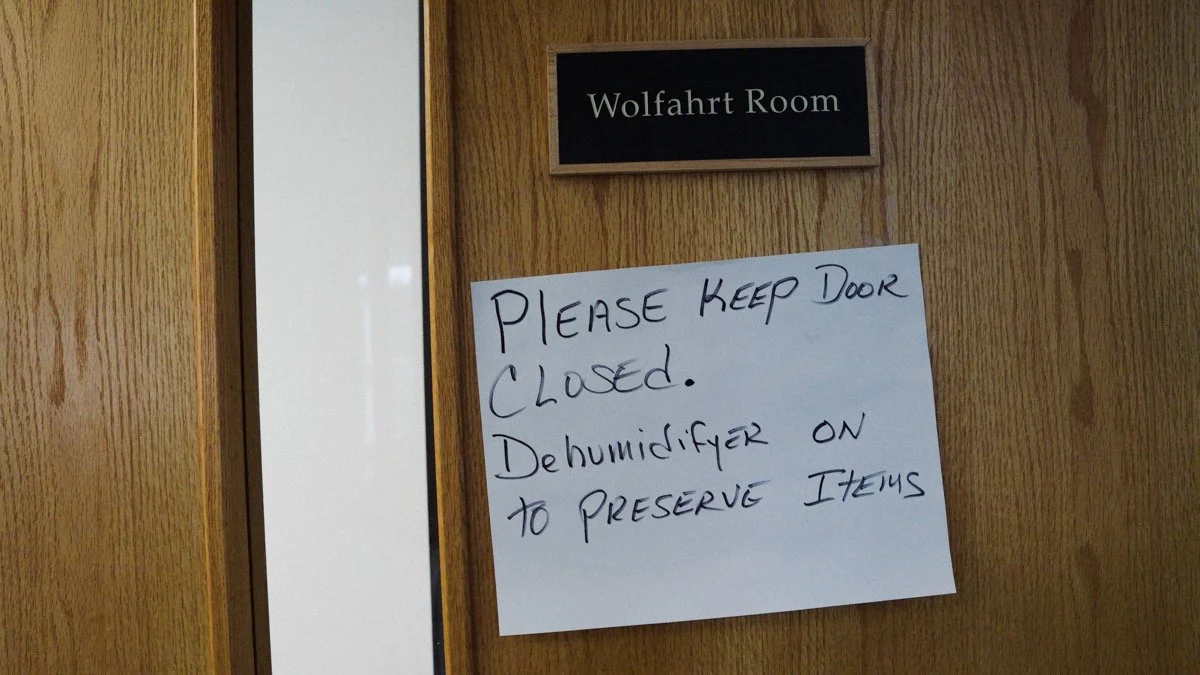 Wolfahrt Room
PLEASE KEEP DOOR
CLOSEd.
DehumidifyER ON
to PRESERVE ItEMS